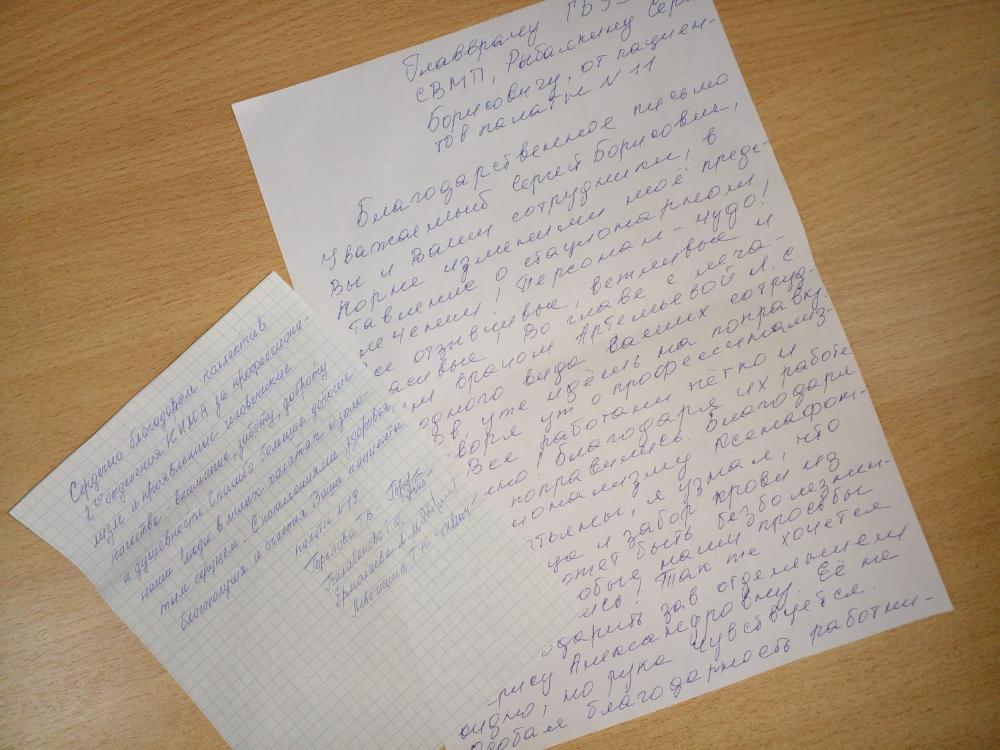 Главврачу ГБУЗ
СВМП, Рыбалкину Серг
Борисовичу, от пациен-
тов палаты N 11
Благодарственное письмо
Уважаемый Сергей Борисович,
Вы и Ваши сотрудники, в
корне изменили моё предс-
тавление о стационарном
лечении! Персонал - чудо!
се отзывчивые, вежливые и
асивые! Во главе с леча-
м врачом Артемьевой Л. С.
одного вида Ваших сотруд-
ов, уже идёшь на поправку.
воря уж о профессионализ-
Все работают чётко и
но! Благодаря их работе
поправились. Благодаря
ионализму Ксенофон-
тьевны, я узнал, что
ца и забор крови из
ожет быть безболезнен-
обые наши просьбы
ись! Так же хочется
дарить зав. отделением
рису Александровну. Её не
видно, но рука чувствуется.
Особая благодарность работни-
Сердечно благодарим коллектив
2 отделения КИМА за профессиона-
лизм и проявленные человеческие
качества: внимание, заботу, доброту
и душевность. Спасибо большое дорогие
наши люди в милых халатах и золо-
тым сердцем. С пожеланиями здоровья,
благополучия и счастья Ваши пациенты
палаты N 19
Горелова Т.В.
Ермолаева А.М.